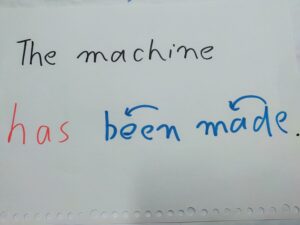 The machine
has been made.